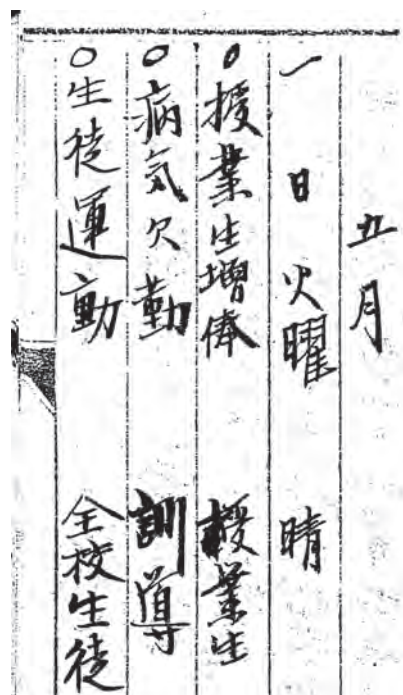 五月
一日 火曜 晴
○授業生増俸 授業生
○病気欠勤 訓導
○生徒運動 全校生徒